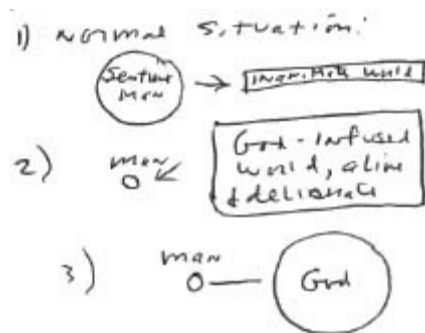 1) Normal Situation:
Sentient Man
inanimate world
2) man
God-infused
world, alive
& deliberate
3) man
God